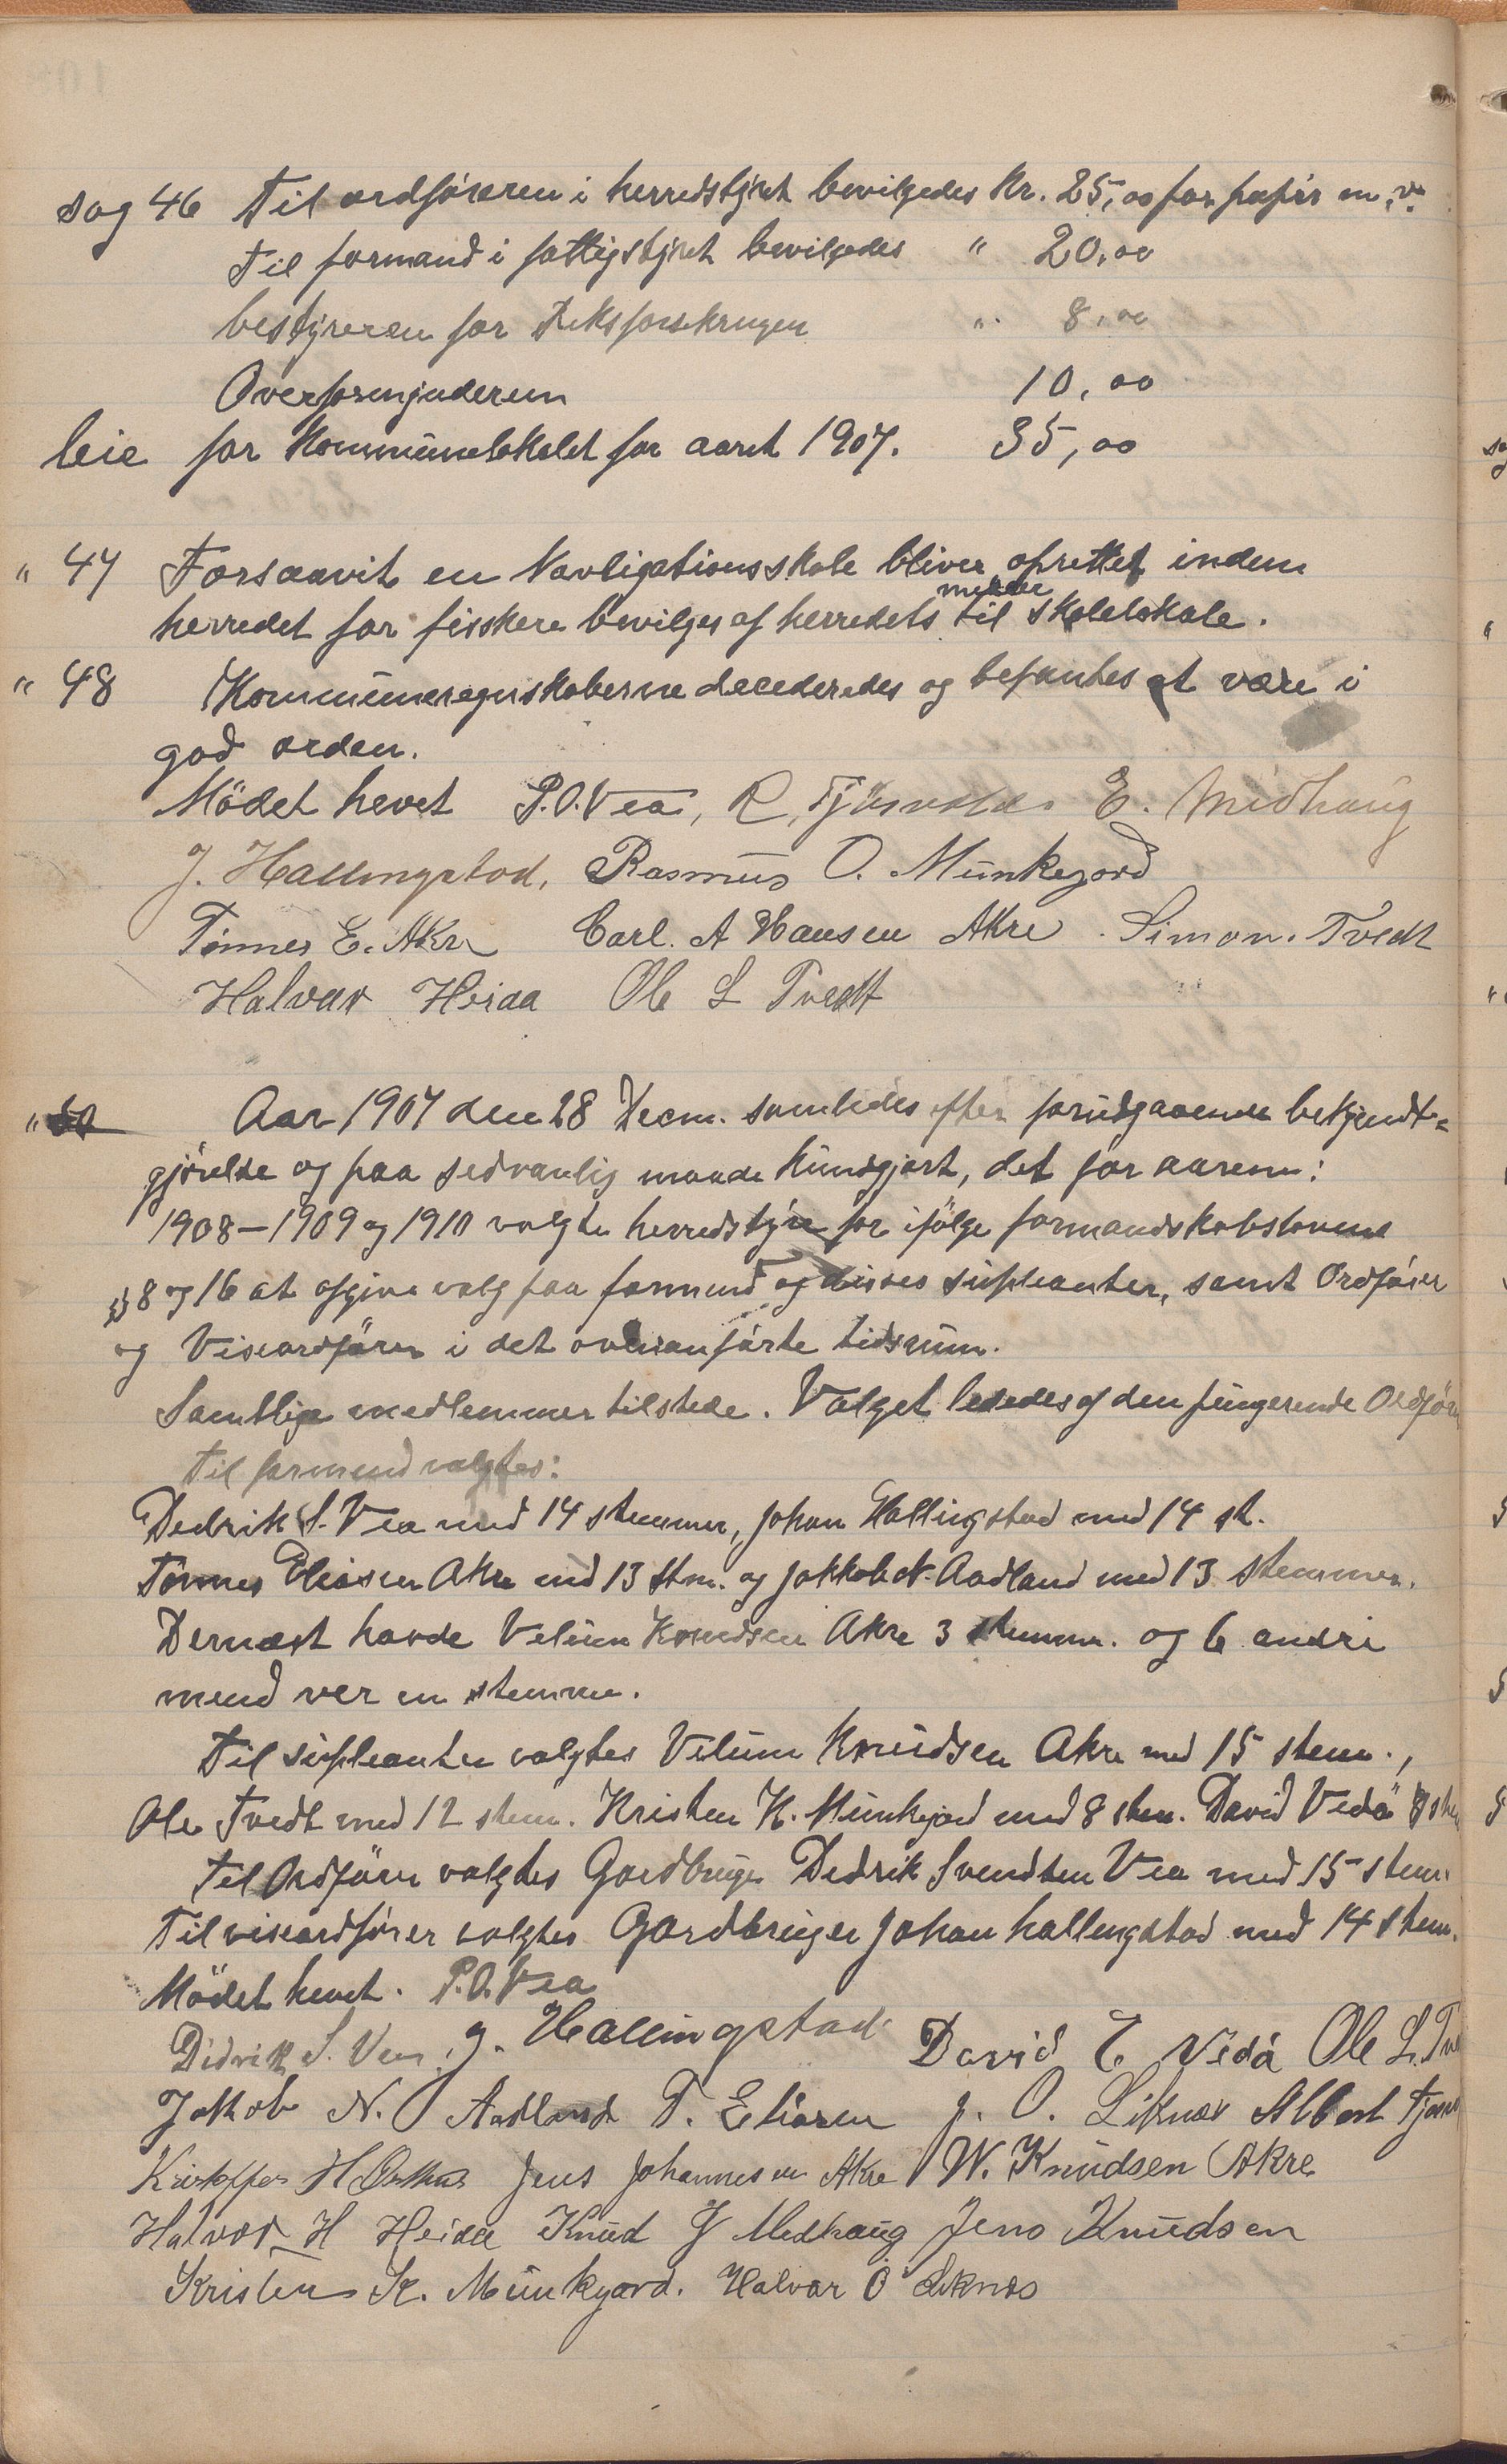 sag 46 Til ordføreren i herredstyret bevilgedes Kr. 25,00 for papir m.v.
Til formand i fattigstyret bevilgedes " 20,00
bestyreren for 8,00
Overformynderen 10,00
leie for Kommunelokalet for aaret 1907. 35,00
" 47 Forsaavit en Navligationsskole bliver oprettet inden
midler
herredet for fiskere bevilges af herredets til skolelokale.
" 48 Kommuneregnskaberne decederedes og befantes at være i
god orden.
Mödet hevet P.O. Vea, R. E. Midhaug
J. Hallingstad, Rasmus O. Munkejord
Tønnes E. Akre Carl. A Hansen Akre. Simon. Tvedt
Halvar Heida Ole L Tvedt
" Aar 1907 den 28 Decm. samledes efter forudgaaende bekjendt=
gjörelse og paa sedvanlig maade kundgjort, det for aarene:
1908-1909 og 1910 valgte herredstyre for ifölge formandskabslovens
§§ 8 og 16 at afgive valg paa formend og disses supleanter, samt Ordförer
og Viseordförer i det ovenanförte tidsrum.
Samtlige medlemmer tilstede. Valget lededes af den fungerende Ordför
Til formend valgtes:
Dedrik S. Vea med 14 stemmer, Johan Hallingstad med 14 st.
Tönnes Eliasen Akre med 13 stm. og Jakkob N. Aadland med 13 stemmer.
Dernæst havde Velum Knudsen Akre 3 stemmer. og 6 andre
mend ver en stemme.
Til supleanter valgtes Velum Knudsen Akre med 15 stem.,
Ole Tvedt med 12 stem. Kristen K. Munkejord med 8 stem. David Vedö 8 ste
Til Ordförer valgtes Gardbruger Dedrik Svendsen Vea med 15 stem.
Til viseordfører valgtes Gardbruger Johan hallingstad med 14 stem.
Mödet hevet. P.O. Vea
Didrik S. Vea, J. Hallingstad David E Vedå Ole L. Tve
Jakob N. Aadland T. Eliasen J. O. Liknes Albert Tjøs
H Jens Johannesen Akre W. Knudsen Akre
Halvor H Heida Knud J Medhaug Jens Knudsen
Kristen K. Munkjord. Halvor O Liknes